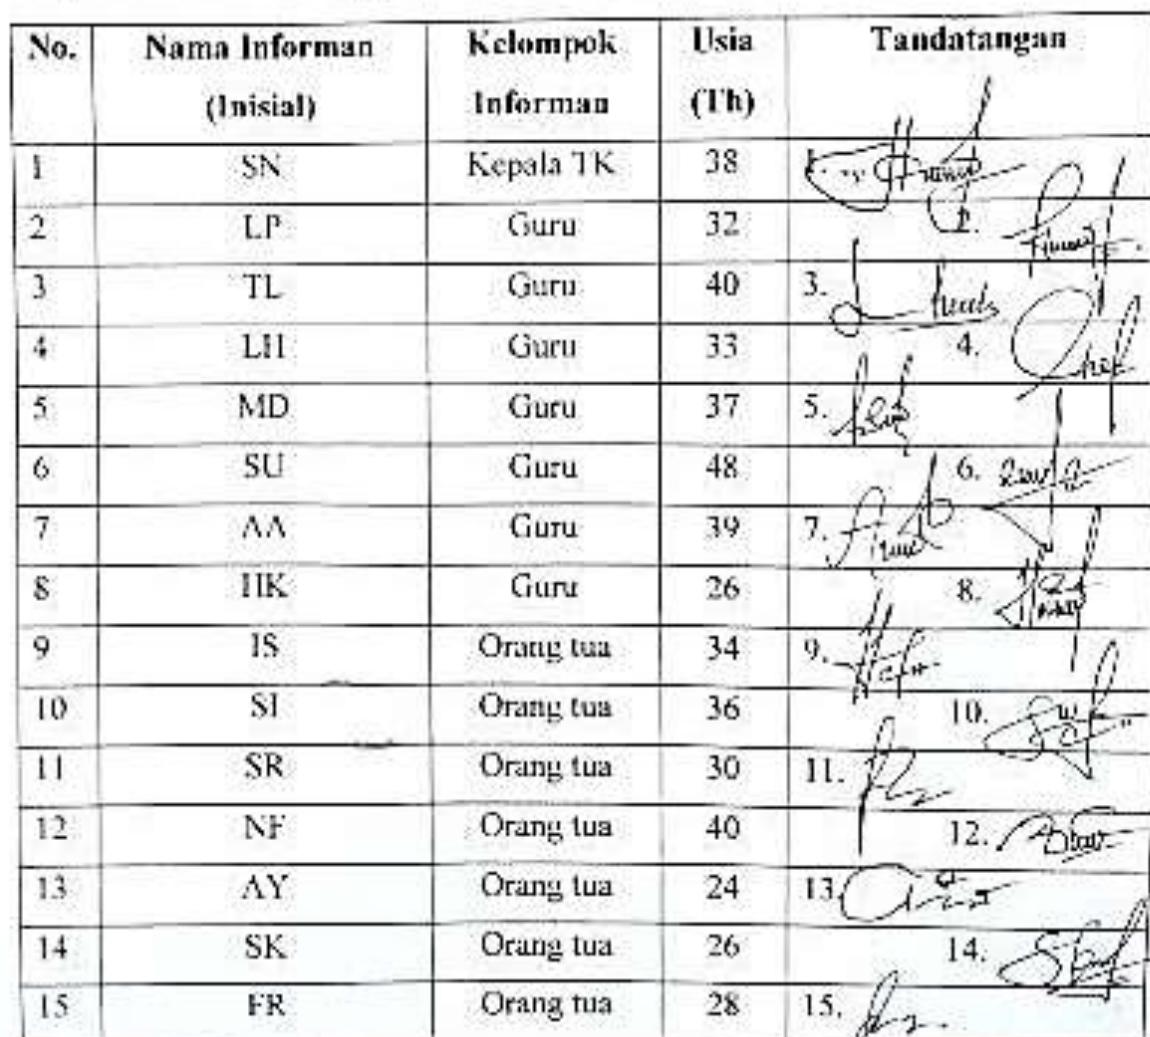 No. Nama Informan Kelompok Usia Tandatangan
(Inisial) Informan (Th)
1 SN Kepala TK 38 1.
2 LP Guru 32 2.
3 TL Guru 40 3.
4 LH Guru 33 4.
5 MD Guru 37 5.
6 SU Guru 48 6.
7 AA Guru 39 7.
8 HK Guru 26 8.
9 IS Orang tua 34 9.
10 SI Orang tua 36 10.
11 SR Orang tua 30 11.
12 NF Orang tua 40 12.
13 AY Orang tua 24 13.
14 SK Orang tua 26 14.
15 FR Orang tua 28 15.